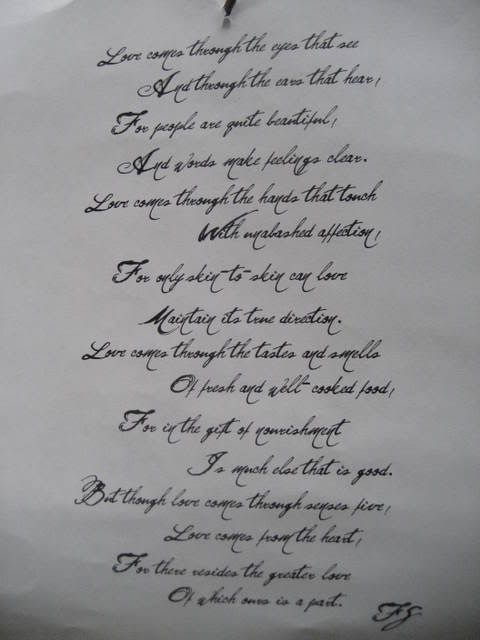 Love comes through the eyes that see
And through the ears that hear,
For people are quite beautiful,
And words make feelings clear.
Love comes through the hands that touch
With unabashed affection,
For only skin-to-skin can love
Maintain its true direction.
Love comes through the tastes and smells
Of fresh and well-cooked food,
For in the gift of nourishment
Is much else that is good.
But though love comes through senses five,
Love comes from the heart,
For there resides the greater love
Of which ours is a part.